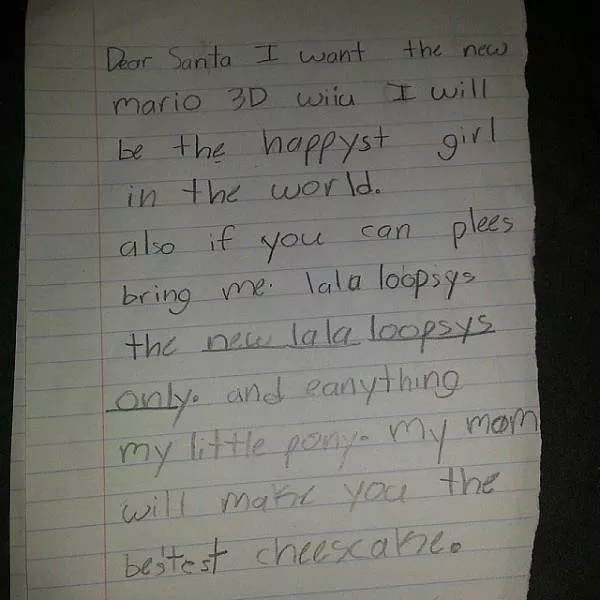 Dear Santa I want the new
mario 3D wiiu I will
be the happyst girl
in the world.
also if you can plees
bring me. lala loopsys
the new lala loopsys
only. and eanything
my little pony. my mom
will make you the
bestest cheescake.